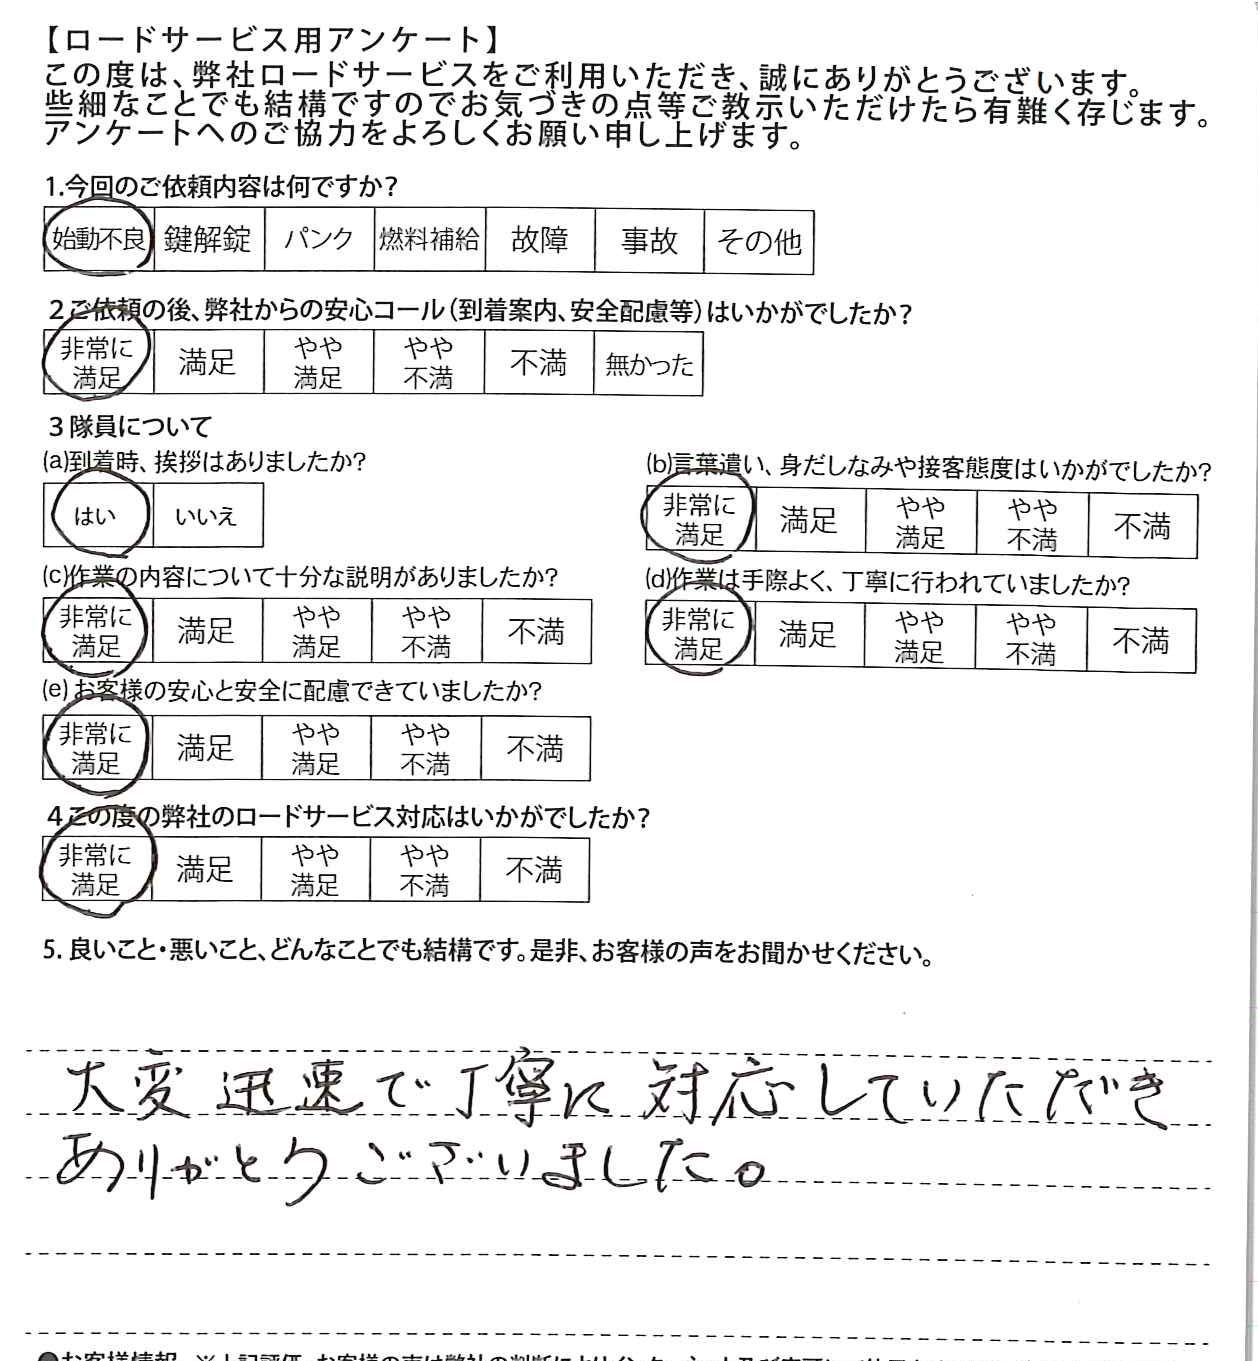 【ロードサービス用アンケート】
この度は、弊社ロードサービスをご利用いただき、誠にありがとうございます。
些細なことでも結構ですのでお気づきの点等ご教示いただけたら有難く存じます。
アンケートへのご協力をよろしくお願い申し上げます。
1.今回のご依頼内容は何ですか?
始動不良 鍵解錠 パンク 燃料補給 故障 事故 その他
2ご依頼の後、弊社からの安心コール(到着案内、安全配慮等)はいかがでしたか?
非常に満足 満足 やや満足 やや不満 不満 無かった
3隊員について
(a)到着時、挨拶はありましたか?
はい いいえ
(b)言葉遣い、身だしなみや接客態度はいかがでしたか?
非常に満足 満足 やや満足 やや不満 不満
(c)作業の内容について十分な説明がありましたか?
非常に満足 満足 やや満足 やや不満 不満
(d)作業は手際よく、丁寧に行われていましたか?
非常に満足 満足 やや満足 やや不満 不満
(e)お客様の安心と安全に配慮できていましたか?
非常に満足 満足 やや満足 やや不満 不満
4この度の弊社のロードサービス対応はいかがでしたか?
非常に満足 満足 やや満足 やや不満 不満
5. 良いこと・悪いこと、どんなことでも結構です。是非、お客様の声をお聞かせください。
大変迅速で丁寧に対応していただき
ありがとうございました。